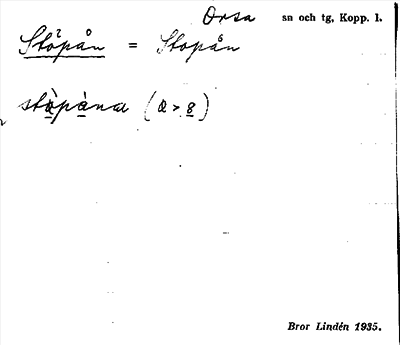 Orsa sn och tg, Kopp. l.
Stöpån = Stopån
stàpàna (a > 8)
Bror Lindén 1935.